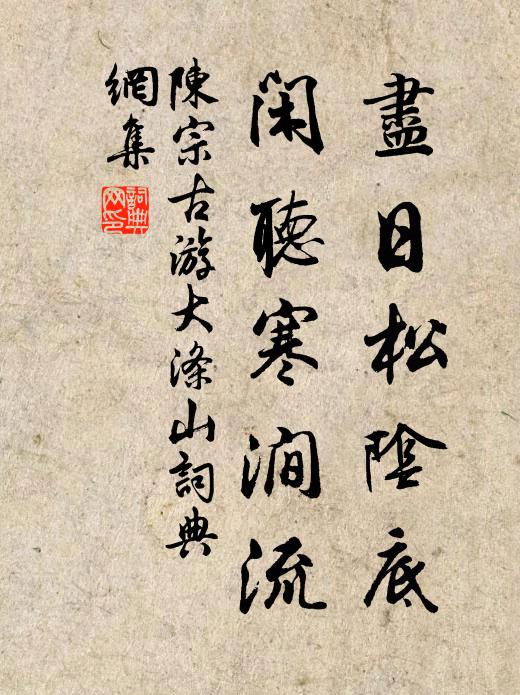 盡日松陰底
閑聽寒澗流
陳宗古游大滌山詞典
網集
詞典
网印